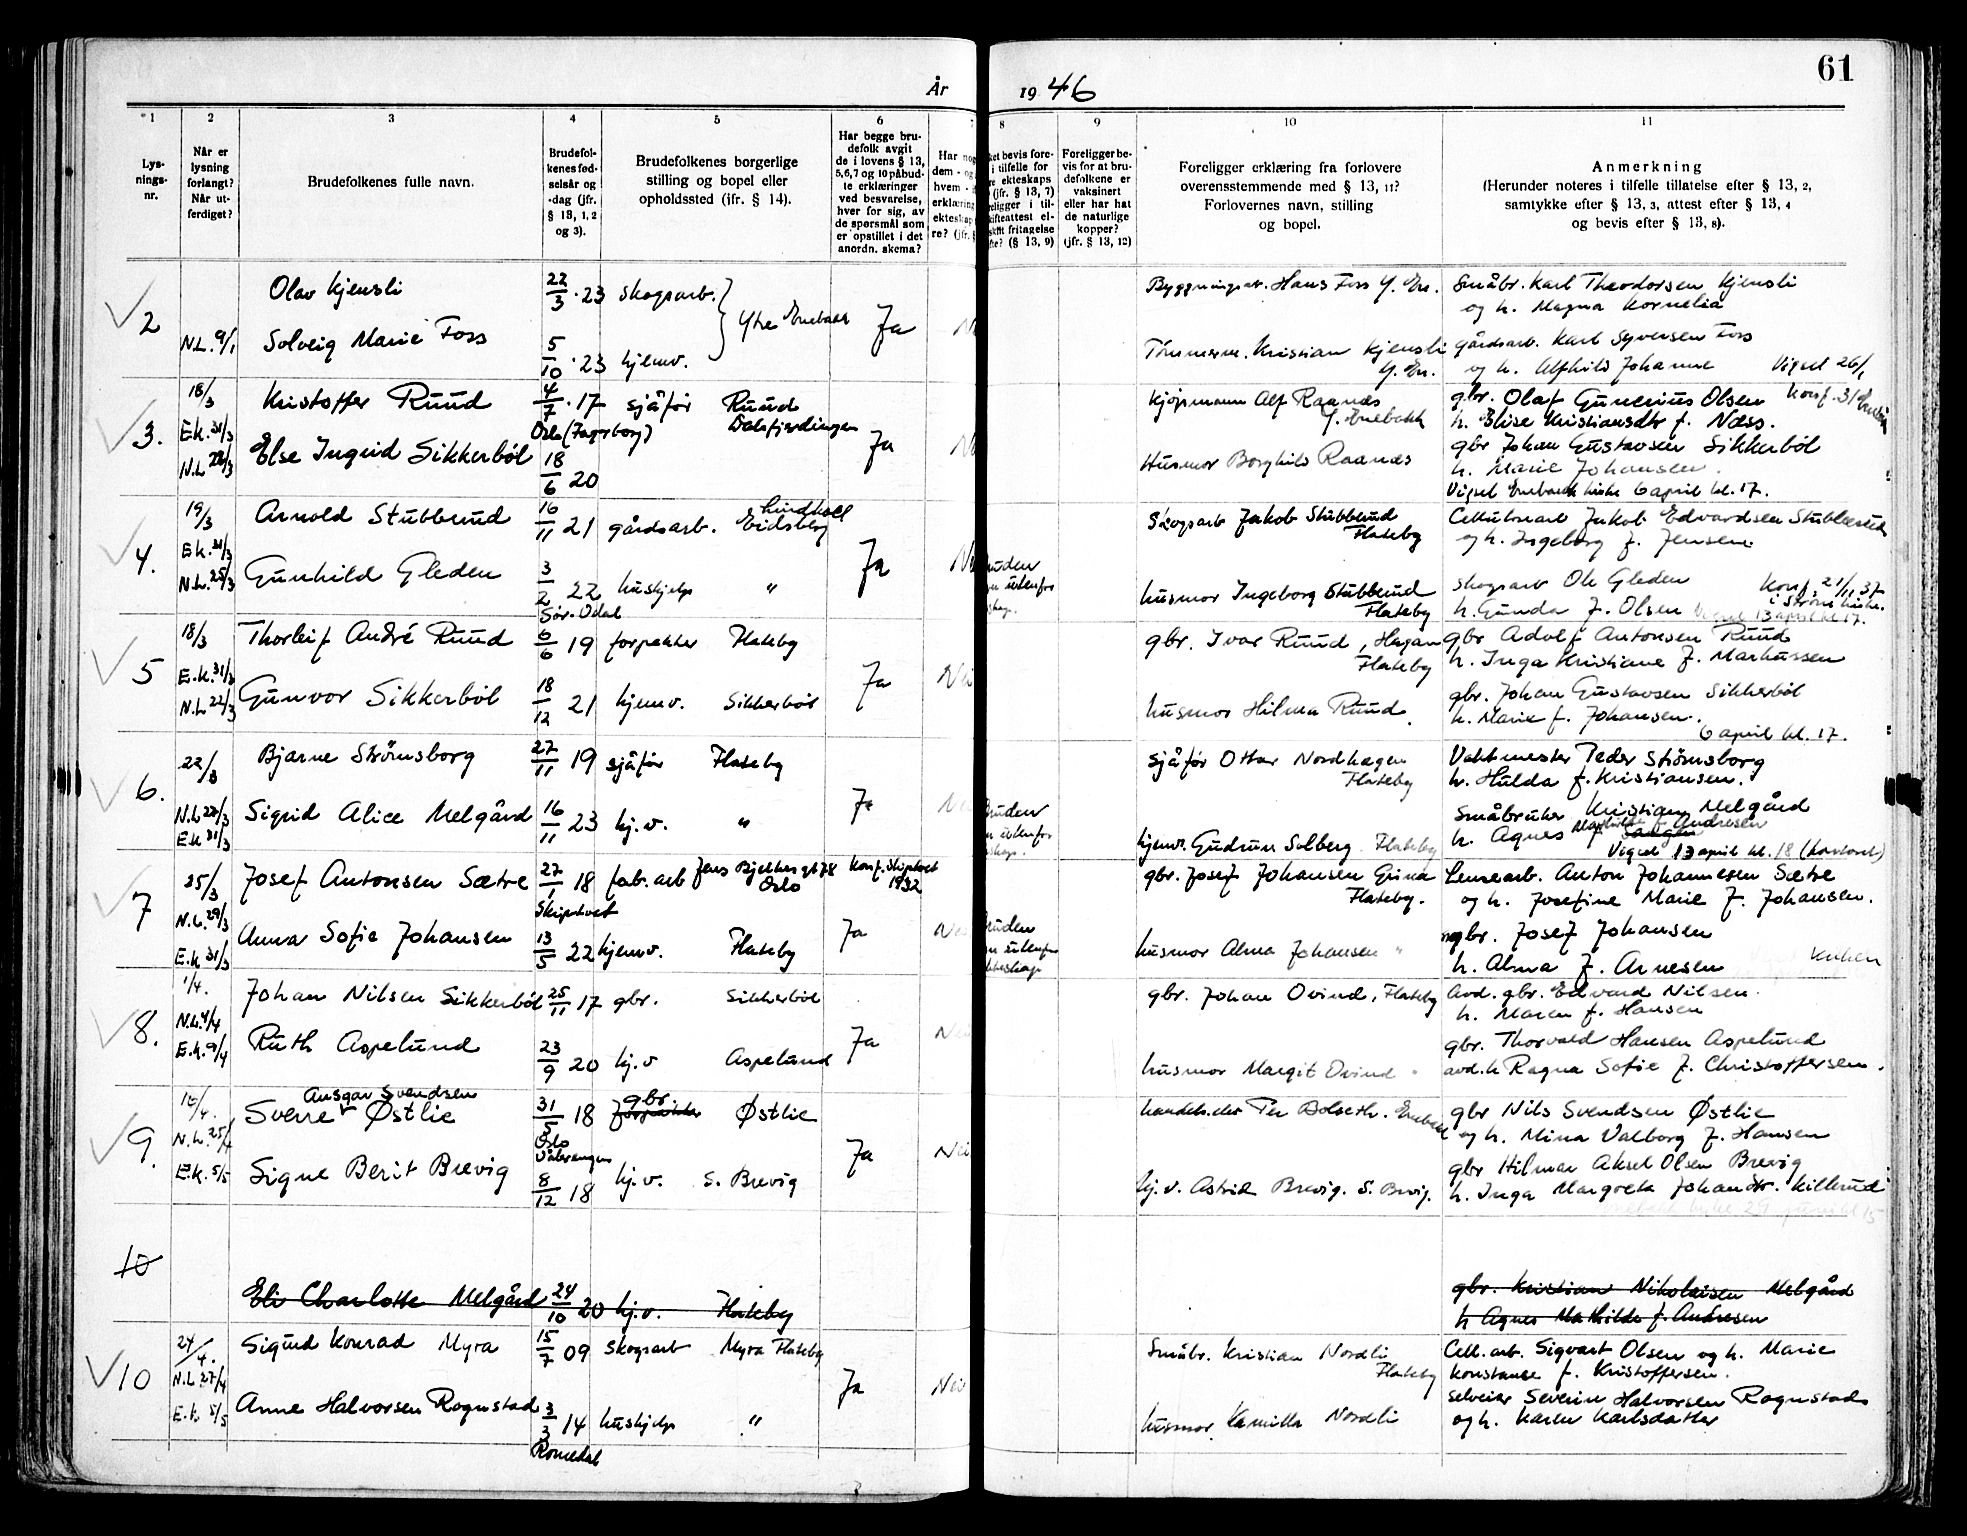 61
År 1946
1 2 3 4 5 6 7 8 9 10 11
Lys-
nings-
nr.
Når er
lysning
forlangt?
Når ut-
ferdiget?
Brudefolkenes fulle navn.
Brudefol-
kenes fød-
selsår og
-dag (jfr.
§ 13, 1, 2
og 3).
Brudefolkenes borgerlige
stilling og bopel eller
opholdssted (jfr. § 14).
Har begge bru-
defolk avgit
de i lovens § 13,
5,6,7 og 10 påbud-
te erklæringer
ved besvarelse,
hver for sig, av
de spørsmål som
er opstillet i det
anordn. skema?
Har nog
dem - og
hvem -
erklæring
ekteskap
re? (jfr. §
ket bevis fore-
i tilfelle for
re ekteskaps
(jfr. § 13, 7)
religger i til-
kifteattest el-
skift fritagelse
te? (§ 13, 9)
Foreligger be-
vis for at bru-
defolkene er
vaksinert
eller har hat
de naturlige
kopper?
(jfr. § 13, 12)
Foreligger erklæring fra forlovere
overensstemmende med § 13, 11?
Forlovernes navn, stilling
og bopel.
Anmerkning
(Herunder noteres i tilfelle tillatelse efter § 13, 2,
samtykke efter § 13, 3, attest efter § 13, 4
og bevis efter § 13, 8).
2 Olav Kjensli 22/3 . 23 skogsarb. Ytre Enebakk Ja Byggningsarb. Hans Foss Y. En. Småbr. Karl Theodorsen Kjensli
og h. Magna Kornelia
N.L. 9/1 Solveig Marie Foss 5/10 . 23 hjemv. Tømmerm. Kristian Kjensli Y. En. gårdsarb. Karl Syversen Foss
og h. Alfhild Johanne Vigsel 26/1
3. 18/3 Kristoffer Ruud 4/7 . 17 sjåfør Ruud Dalefjerdingen Ja Kjøpmann Alf Raanås Y. Enebakk gbr. Olaf Gunerius Olsen
h. Elise Kristiansdtr f. Næss.
E.k. 31/3 Oslo (Fagerborg)
N.L 28/3 Else Ingrid Sikkerbøl 18/6 20 Husmor Borghild Raanås gbr Johan Gustavsen Sikkerböl
h. Marie Johansen.
Vigsel Enebakk kirke 6 april kl. 17.
4. 19/3 Arnold Stubberud 16/11 21 gårdsarb. Eidsberg Ja Skogsarb Jakob Stubberud Flateby Cellulosearb Jakob Edvardsen Stubberud
og h. Ingeborg f. Jensen.
E.k. 31/3
N.L. 25/3 Gunhild Gleden 3/2 22 hushjelp " husmor Ingeborg Stubberud Flateby skogsarb Ole Gleden Konf. 21/11 37
h. Gunda f. Olsen
Sør-Odal
5 18/3 Thorleif André Ruud 6/6 19 forpakter Flateby Ja gbr. Ivar Ruud, Hagan Flateby gbr Adolf Antonsen Ruud
h. Inga Kristiane f. Markussen
E.k. 31/3
N.L 22/3 Gunvor Sikkerböl 18/12 21 hjemv. Sikkerböl husmor Hilma Ruud gbr. Johan Gustavsen Sikkerböl
h. Marie f. Johansen.
6 april kl. 17.
6. 22/3 Bjarne Strömsborg 27/11 19 sjåfør Flateby Ja sjåfør Ottar Nordhagen Flateby Vaktmester Peder Strömsborg
h. Hulda f. Kristiansen.
N.L 28/3
E.k 31/3 Sigrid Alice Melgård 16/11 23 hj.v. " hjemv. Gudrun Solberg Flateby Småbruker Kristian Melgård
h. Agnes Mathilde f. Andresen
Vigsel 13 april kl. 18 (kontoret)
7 25/3 Josef Antonsen Sætre 27/1 18 fab. arb Jens Bjelkes gt 78 Oslo Konf. Skiptvet 1932 gbr. Josef Johansen Grina Flateby. Lensearb. Anton Johannesen Sætre
og h. Josefine Marie f. Johansen.
N.L. 29/3 Skiptvet
E.k 31/3 Anna Sofie Johansen 13/5 22 hjemv. Flateby Ja husmor Alma Johansen " gbr. Josef Johansen
h. Alma f. Arnesen
8. 1/4. Johan Nilsen Sikkerböl 25/11 17 gbr. Sikkerböl Ja gbr. Johan Ovind, Flateby Avd. gbr. Edvard Nilsen.
h. Maren f. Hansen
N.L. 4/4
E.k. 9/4 Ruth Aspelund 23/9 20 hj.v Aspelund husmor Margit Ovind " gbr. Thorvald Hansen Aspelund
avd. h Ragna Sofie f. Christoffersen.
9. 16/4. Sverre Ansgar Svendsen Østlie 31/5 18 gbr. forpakter Østlie Ja handelsdr Per Bolseth. Enebakk gbr Nils Svendsen Østlie
og h. Mina Valborg f. Hansen
N.L. 25/4 Oslo Vålerengen
E.k. 5/5 Signe Berit Brevig 8/12 18 hj.v. S. Brevig hj.v. Astrid Brevig. S. Brevig. gbr Hilmar Aksel Olsen Brevig
h. Inga Margrete Johandtr. Killerud
10 Eli Charlotte Melgård 24/10 20 hj.v. Flateby gbr. Kristian Nikolaisen Melgård
h Agnes Mathilde f. Andresen
10 24/4. Sigurd Konrad Myra 15/7 09 skogsarb Myra Flateby Ja Småbr. Kristian Nordli Flateby Cell. arb. Sigvart Olsen og h. Marie
Konstanse f. Kristoffersen.
N.L 27/4
E.k. 5/5 Anne Halvorsen Rognstad 3/3 14 hushjelp " husmor Kamilla Nordli selveier Severin Halvorsen Rognstad
og h. Karen Karlsdatter
Romedal